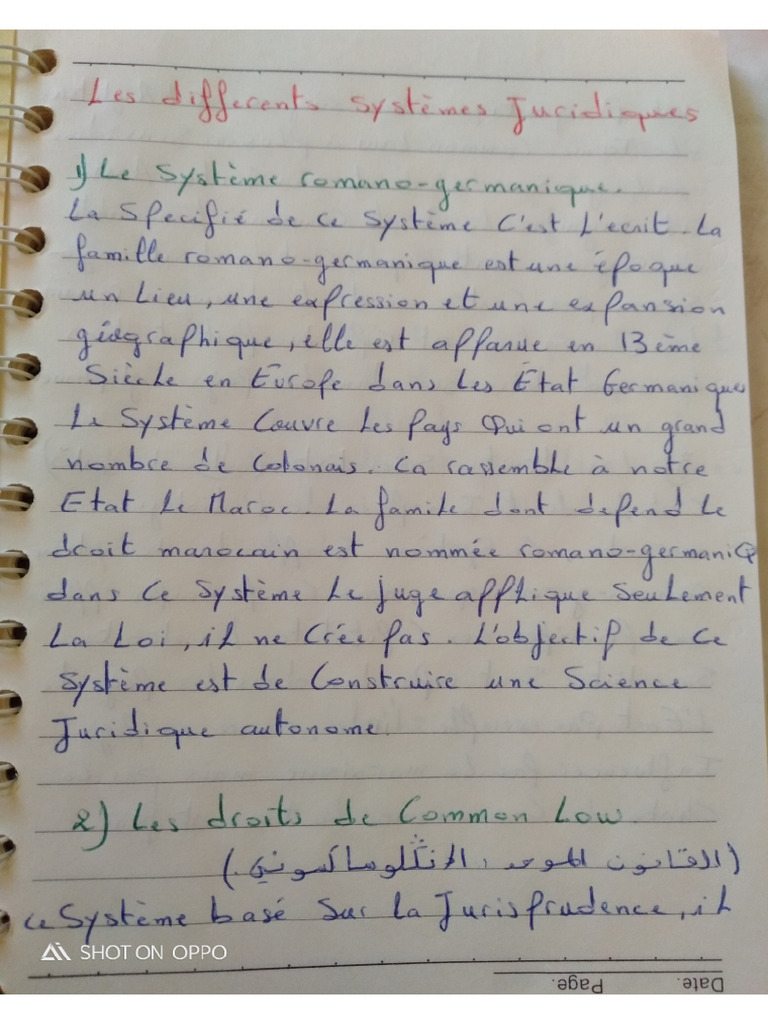 Les differents systèmes Juridiques
1) Le système romano-germanique.
La Specifié de ce système C'est L'ecrit. La
famille romano-germanique est une époque
un Lieu, une expression et une expansion
géographique, elle est apparue en 13ème
Siècle en Europe dans Les État Germanique
Le Système Couvre Les Pays Qui ont un grand
nombre de Colonais. Ca rassemble à notre
Etat Le Maroc. La famile dont depend Le
droit marocain est nommée romano-germaniq
dans Ce Système Le juge applique Seulement
La Loi, il ne Crée pas. L'objectif de Ce
Système est de Construire une Science
Juridique autonome.
2) Les droits de Common Low
(القانون الموحد، الانگلوساكسوني)
Ce Système basé Sur La Jurisprudence, il
SHOT ON OPPO
Date. Page.